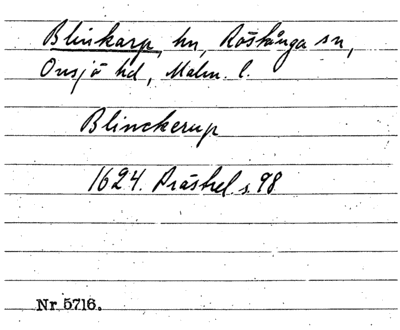 Blinkarp, hn, Röstånga sn,
Onsjö hd, Malm. l.
Blinckerup
1624. Prästrel. s. 98
Nr 5716.